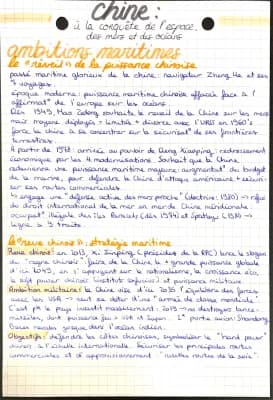 chine :
à la conquête de l'espace,
des mers et des océans
ambitions maritimes
le "réveil" de la puissance chinoise
passé maritime glorieux de la chine : navigateur Zheng He et ses
7 voyages.
Epoque moderne : puissance maritime chinoise efface face à l'
de l'europe sur les océans.
Dès 1949, Mao Zedong souhaite le recul de la Chine sur les mers
mais moyens limités + divorce avec l'URSS en 1960's
force la chine à se concentrer sur la de ses frontières
terrestres.
A partir de 1978 : arrivée au pouvoir de Deng Xiaoping : redressement
économique par les 4 modernisations. Souhait que la Chine
une puissance maritime majeure : du budget
de la marine, pour défendre la Chine d'attaque américaine +
ses routes commerciales.
↳ engage une défense active, des mers proche (doctrine, 1980) → refus
du droit international de la mer en mer de Chine méridionale,
illégale des îles Paracels (dès 1974) et Spratley (
ligne à 9 traits.
le rêve chinois : stratégie maritime
Rêve chinois : en 2013, Xi Jinping (président de la RPC) lance le slogan
du "rêve chinois" : faire de la Chine la + grande puissance globale
d'ici 2049, en s'appuyant sur le nationalisme, la croissance éco,
le soft power chinois (instituts confucius) et puissance militaire.
Ambition militaire : la Chine vise d'ici 2035 l'équilibre des forces
avec les USA → veut se doter d'une "armée de classe mondiale".
C'est pk le pays investit massivement : 2013 → ns destroyers lance-
missiles, dont puissance feu > USA et Japon. 1e porte avion : Shandong.
Bases navales jusque dans l'océan indien.
Objectifs : défendre les côtes chinoises, symboliser le "hard power"
chinois à l'échelle internationale. Sécuriser les principales routes
commerciales et d'approvisionnement : "nvelles routes de la soie".